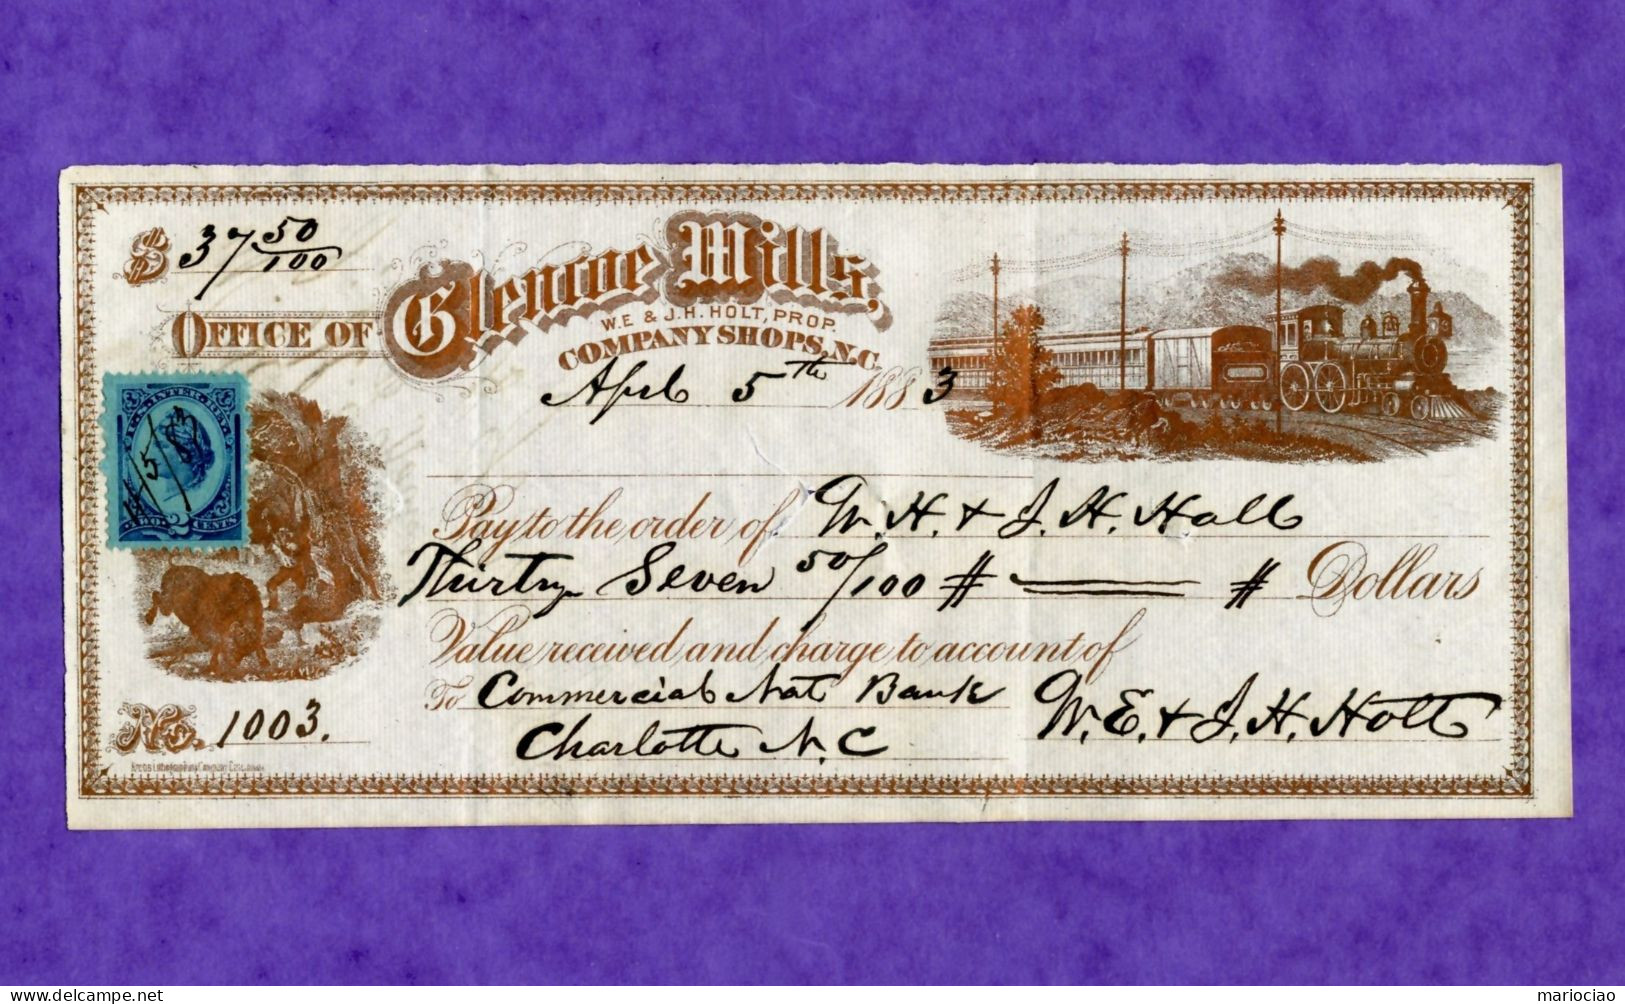 $ 37 50/100
OFFICE OF Glencoe Mills,
W.E. & J.H. HOLT, PROP.
COMPANY SHOPS, N.C.
April 5th 1883
U.S. INTER. REV.
4/5/83
TWO 2 CENTS
Pay to the order of W. H. & J. H. Hall
Thirty Seven 50/100 # —— # Dollars
Value received and charge to account of
To Commercial Nat Bank
Charlotte N.C
W. E. & J. H. Holt
No. 1003.
www.delcampe.net
mariociao